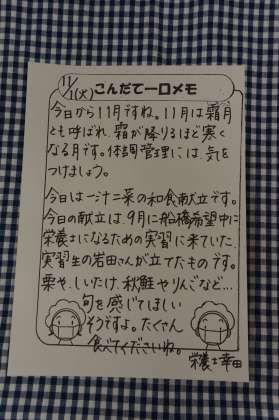 11/1(火) こんだて一口メモ
今日から11月ですね。11月は霜月
とも呼ばれ、霜が降りるほど寒く
なる月です。体調管理には、気を
つけましょう。
今日は一汁二菜の和食献立です。
今日の献立は、9月に船橋希望中に
栄養士になるための実習に来ていた、
実習生の岩田さんが立てたものです。
栗や、しいたけ、秋鮭やりんごなど…
旬を感じてほしい
そうですよ。たくさん
食べてくださいね。
栄養士 幸田